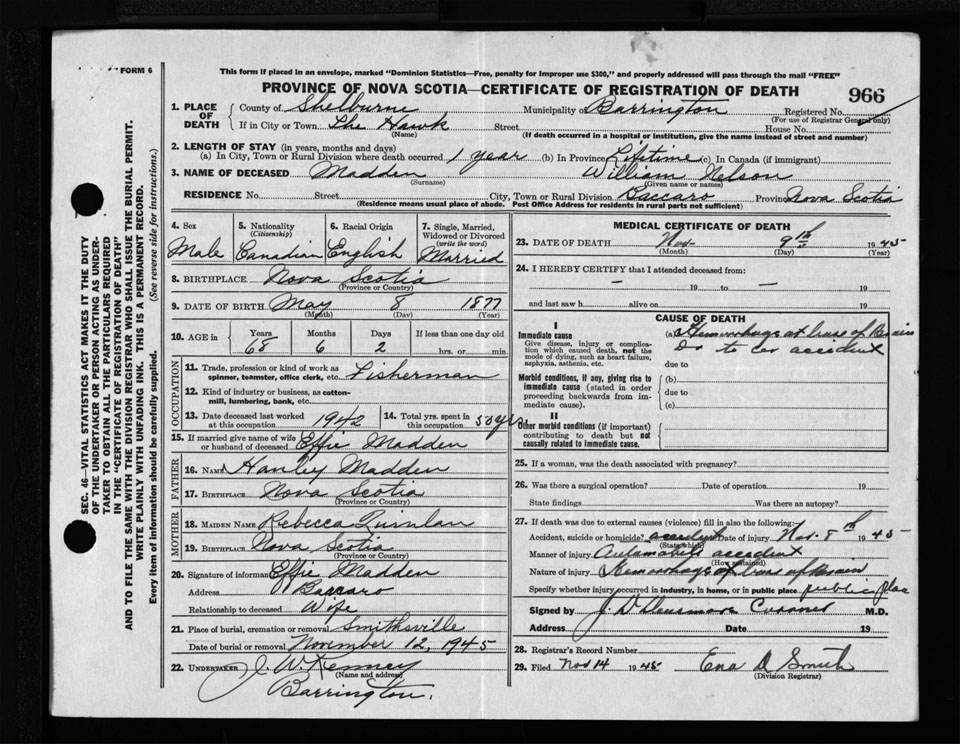 FORM 6
This form if placed in an envelope, marked "Dominion Statistics—Free, penalty for improper use $300," and properly addressed will pass through the mail "FREE"
PROVINCE OF NOVA SCOTIA—CERTIFICATE OF REGISTRATION OF DEATH
966
1. PLACE OF DEATH County of Shelburne Municipality of Barrington Registered No.
(For use of Registrar General only)
If in City or Town The Hawk Street House No.
(Name) (If death occurred in a hospital or institution, give the name instead of street and number)
2. LENGTH OF STAY (in years, months and days)
(a) In City, Town or Rural Division where death occurred 1 year (b) In Province Lifetime (c) In Canada (if immigrant)
3. NAME OF DECEASED Madden William Nelson
(Surname) (Given name or names)
RESIDENCE No. Street City, Town or Rural Division Baccaro Province Nova Scotia
(Residence means usual place of abode. Post Office Address for residents in rural parts not sufficient)
4. Sex 5. Nationality (Citizenship) 6. Racial Origin 7. Single, Married, Widowed or Divorced (write the word)
Male Canadian English Married
8. BIRTHPLACE Nova Scotia
(Province or Country)
9. DATE OF BIRTH May 8 1877
(Month) (Day) (Year)
10. AGE in Years Months Days If less than one day old
68 6 2 hrs. or min.
OCCUPATION
11. Trade, profession or kind of work as spinner, teamster, office clerk, etc. Fisherman
12. Kind of industry or business, as cotton-mill, lumbering, bank, etc.
13. Date deceased last worked at this occupation 1942 14. Total yrs. spent in this occupation 50 yrs
15. If married give name of wife or husband of deceased Effie Madden
FATHER
16. NAME Hanley Madden
17. BIRTHPLACE Nova Scotia
(Province or Country)
MOTHER
18. MAIDEN NAME Rebecca Quinlan
19. BIRTHPLACE Nova Scotia
(Province or Country)
20. Signature of informant Effie Madden
Address Baccaro
Relationship to deceased Wife
21. Place of burial, cremation or removal Smithsville
Date of burial or removal November 12, 1945
22. UNDERTAKER J. W. Kenney
(Name and address)
Barrington.
MEDICAL CERTIFICATE OF DEATH
23. DATE OF DEATH Nov. 9th 1945
(Month) (Day) (Year)
24. I HEREBY CERTIFY that I attended deceased from:
— 19 to — 19
and last saw h alive on 19
CAUSE OF DEATH
I
Immediate cause (a) Hemorrhage at base of Brain
Give disease, injury or complication which caused death, not the mode of dying, such as heart failure, asphyxia, asthenia, etc.
to car accident
due to
Morbid conditions, if any, giving rise to immediate cause (stated in order proceeding backwards from immediate cause).
(b)
due to
(c)
II
Other morbid conditions (if important) contributing to death but not causally related to immediate cause.
25. If a woman, was the death associated with pregnancy?
26. Was there a surgical operation? Date of operation 19
State findings Was there an autopsy?
27. If death was due to external causes (violence) fill in also the following:
Accident, suicide or homicide? accident Date of injury Nov. 8th 1945
(State which)
Manner of injury Automobile accident
(How sustained)
Nature of injury Hemorrhage of base of Brain
Specify whether injury occurred in industry, in home, or in public place public place
Signed by J. D. M.D.
Address Date 19
28. Registrar's Record Number
29. Filed Nov 14 1945 Ena D Smith
(Division Registrar)
SEC. 46—VITAL STATISTICS ACT MAKES IT THE DUTY
OF THE UNDERTAKER OR PERSON ACTING AS UNDER-
TAKER TO OBTAIN ALL THE PARTICULARS REQUIRED
IN THE "CERTIFICATE OF REGISTRATION OF DEATH"
AND TO FILE THE SAME WITH THE DIVISION REGISTRAR WHO SHALL ISSUE THE BURIAL PERMIT.
WRITE PLAINLY WITH UNFADING INK. THIS IS A PERMANENT RECORD.
Every item of information should be carefully supplied. (See reverse side for instructions.)